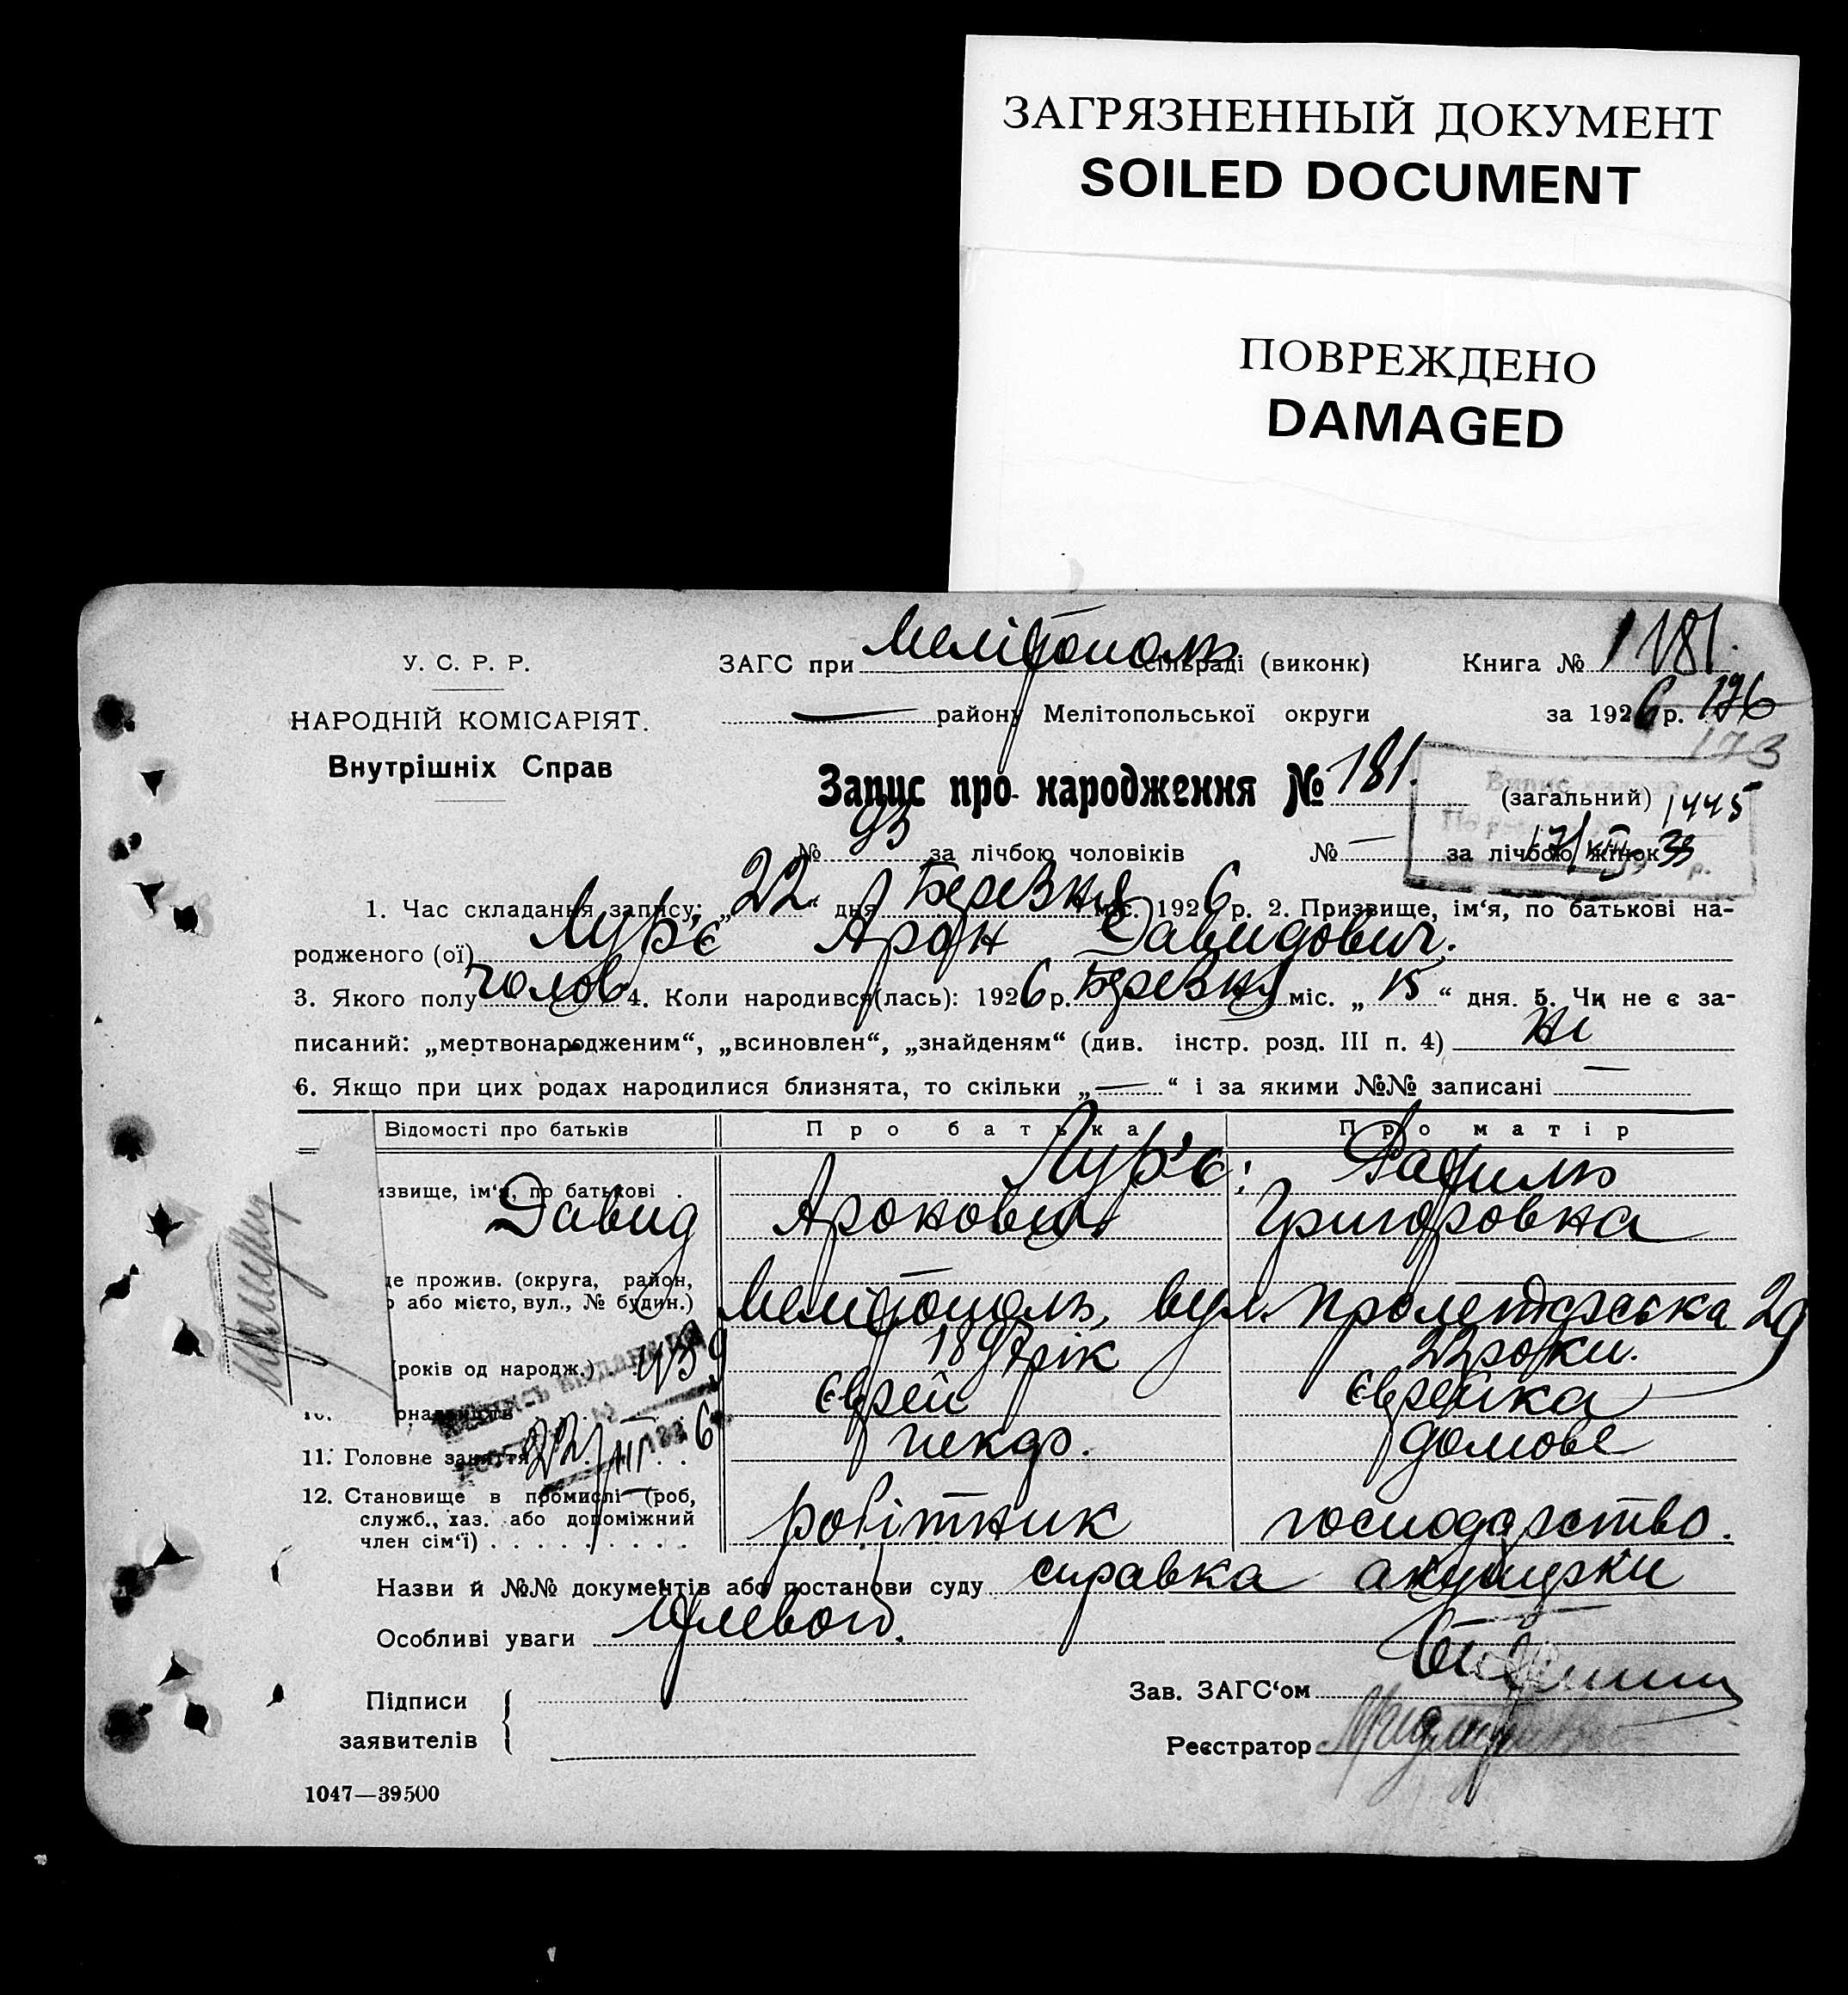 ЗАГРЯЗНЕННЫЙ ДОКУМЕНТ
SOILED DOCUMENT
ПОВРЕЖДЕНО
DAMAGED
У. С. Р. Р.
НАРОДНІЙ КОМІСАРІЯТ.
Внутрішніх Справ
ЗАГС при Мелітополь сільраді (виконк)
району Мелітопольської округи
Книга № 1 181.
за 1926 р. 176
173
Запис про народження № 181. (загальний) 1445
№ 93 за лічбою чоловіків № — за лічбою жінок
1. Час складання запису: „22“ дня Березня міс. 1926 р. 2. Призвище, ім‘я, по батькові на-
родженого (ої) Лур'є Арон Давидович.
3. Якого полу чолов 4. Коли народився(лась): 1926 р. Березня міс. „15“ дня. 5. Чи не є за-
писаний: „мертвонародженим“, „всиновлен“, „знайденям“ (див. інстр. розд. III п. 4) Ні
6. Якщо при цих родах народилися близнята, то скільки „—“ і за якими №№ записані —
Відомості про батьків Про батька Про матір
ізвище, ім‘я, по батькові . Лур'є: Рахиль
Давид Аронович Григоровна
це прожив. (округа, район,
о або місто, вул., № будин.) Мелітополь, вул. Пролетарська 29
(років од народж.) 1897 рік 22 роки.
Єврей Єврейка
11. Головне заняття 22/III 6 пекар. домове
12. Становище в промислі (роб,
служб., хаз. або допоміжний
член сім‘ї) . . . . . . . . . робітник господарство.
Назви й №№ документів або постанови суду справка акушерки
Особливі уваги
Підписи
заявителів
Зав. ЗАГС‘ом
Реєстратор
1047—39500